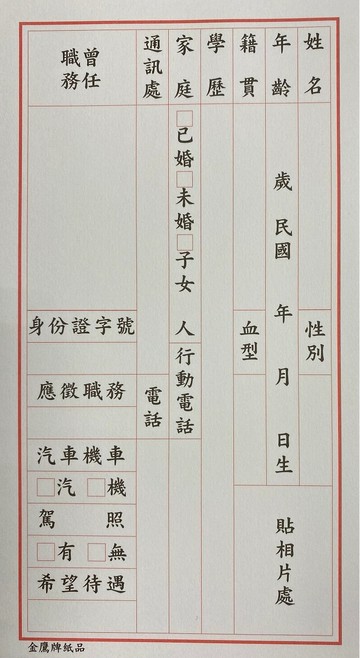 姓名
性別
年齡
歲 民國 年 月 日生
籍貫
血型
貼相片處
學歷
家庭
□已婚□未婚□子女 人
行動電話
通訊處
電話
曾任
職務
身份證字號
應徵職務
汽車機車
□汽 □機
駕照
□有 □無
希望待遇
金鷹牌紙品